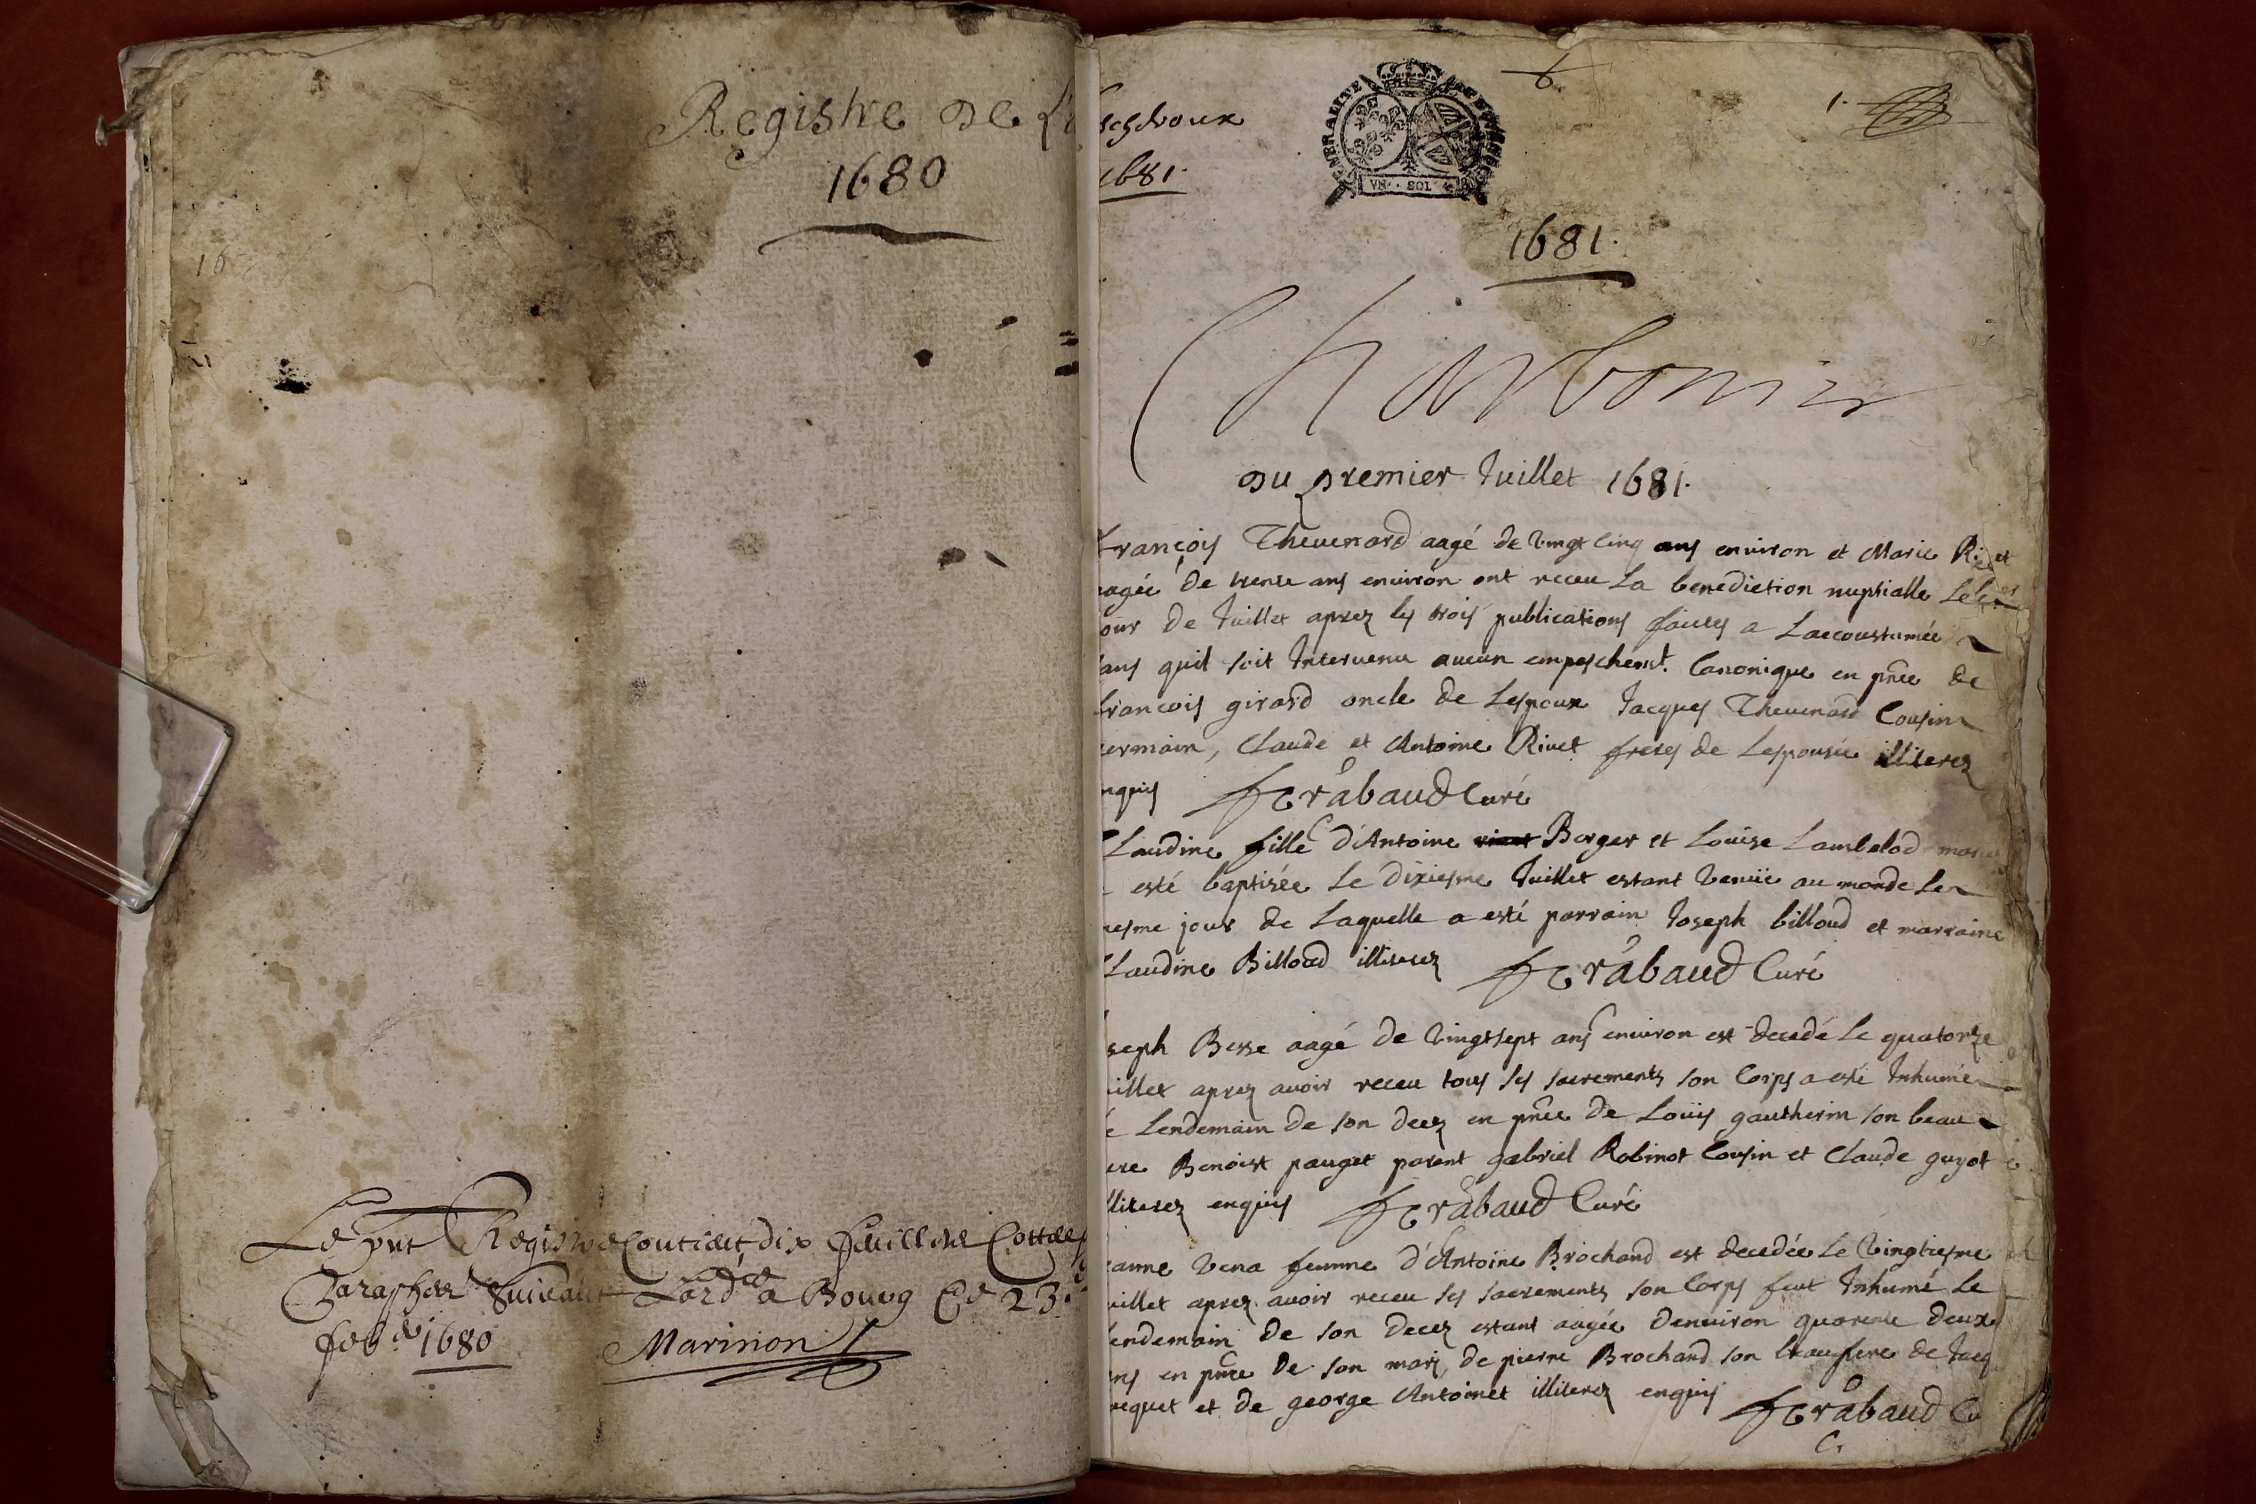 Registre de
1680
Le pnt Registre Contient dix feuillets Cottes
Paraphez Suivant Lordce a Bourg Ce 23.e
feb. 1680
Marinon
1681.
6
1.
GENERALITE
VN SOL
1681.
Charbonier
du premier Juillet 1681.
françois Thevenard aagé de vingt cinq ans environ et Marie Rivet
aagée de trente ans environ ont receu La benediction nuptialle Le
jour de Juillet aprez les trois publications faites a Laccoustumée
sans quil soit Intervenu aucun empeschemt. Canonique en pnce de
francois girard oncle de Lespoux Jacques Thevenard Cousin
germain, Claude et Antoine Rivet freres de Lespousée illiterez
enquis ferabaud Curé
Claudine fille d'Antoine Berger et Louise
esté baptisée Le dixiesme Juillet estant venüe au monde le
mesme jour de Laquelle a esté parrain Joseph billoud et marraine
Claudine Billoud illiterez ferabaud Curé
seph Besse aagé de vingtsept ans environ est decedé Le quatorze
uillet aprez avoir receu tous ses sacrements son Corps a esté Inhumé
Lendemain de son decez en pnce de Loüis gautherin son beau
ere Benoist pauget parent gabriel Robinot Cousin et Claude guyot
illiterez enquis ferabaud Curé
eanne Vena femme d'Antoine Brochand est decedée Le vingtiesme
uillet aprez avoir receu ses sacrements son Corps feut Inhumé Le
endemain de son decez estant aagée denviron quarente deux
ans en pnce de son mary de pierre Brochand son beaufrere de Jacq
et de george Antoinet illiterez enquis ferabaud Cu